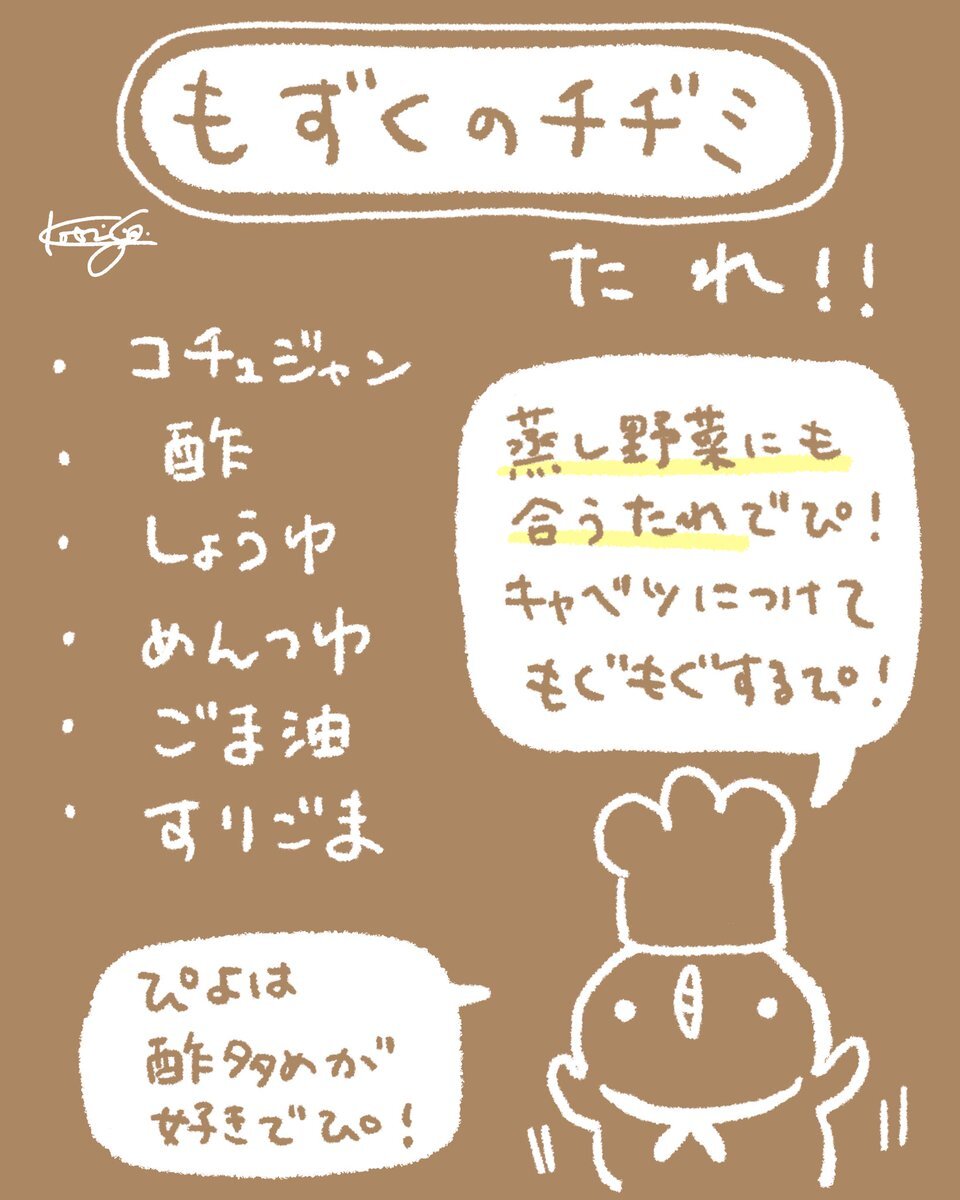 もずくのチヂミ
たれ!!
・コチュジャン
・酢
・しょうゆ
・めんつゆ
・ごま油
・すりごま
蒸し野菜にも
合うたれでぴ!
キャベツにつけて
もぐもぐするぴ!
ぴよは
酢多めが
好きでぴ!